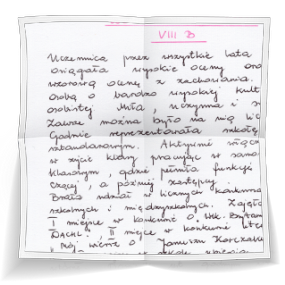 VIII B
Uczennica przez wszystkie lata
osiągała wysokie oceny ora
wzorową ocenę z zachowania.
osobą o bardzo wysokiej kult
osobistej. Miła, uczynna i s
zawsze można było na nią lic
Godnie reprezentowała szkołę
sztandarowym. Aktywnie włącz
w życie klasy pracując w samo
klasowym, gdzie pełniła funkcję
czącej, a później zastępcy.
Brała udział w licznych konkursa
szkolnych i międzyszkolnych. Zajęła
I miejsce w konkursie o
II miejsce w konkursie lite
"Mój wiersz o Januszu Korczaku